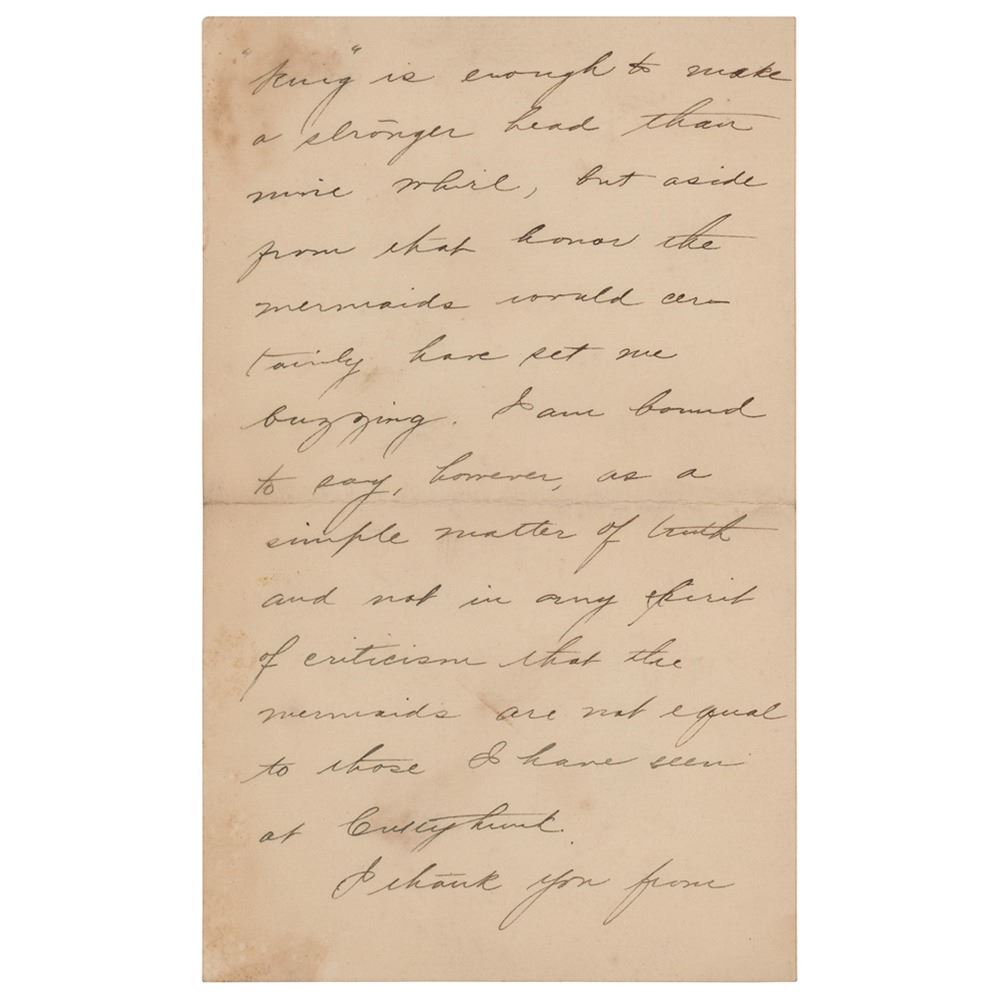 "King" is enough to make
a stronger head than
mine whirl, but aside
from that honor the
mermaids would cer-
tainly have set me
buzzing. I am bound
to say, however, as a
simple matter of truth
and not in any spirit
of criticism that the
mermaids are not equal
to those I have seen
at Cuttyhunk.
I thank you from